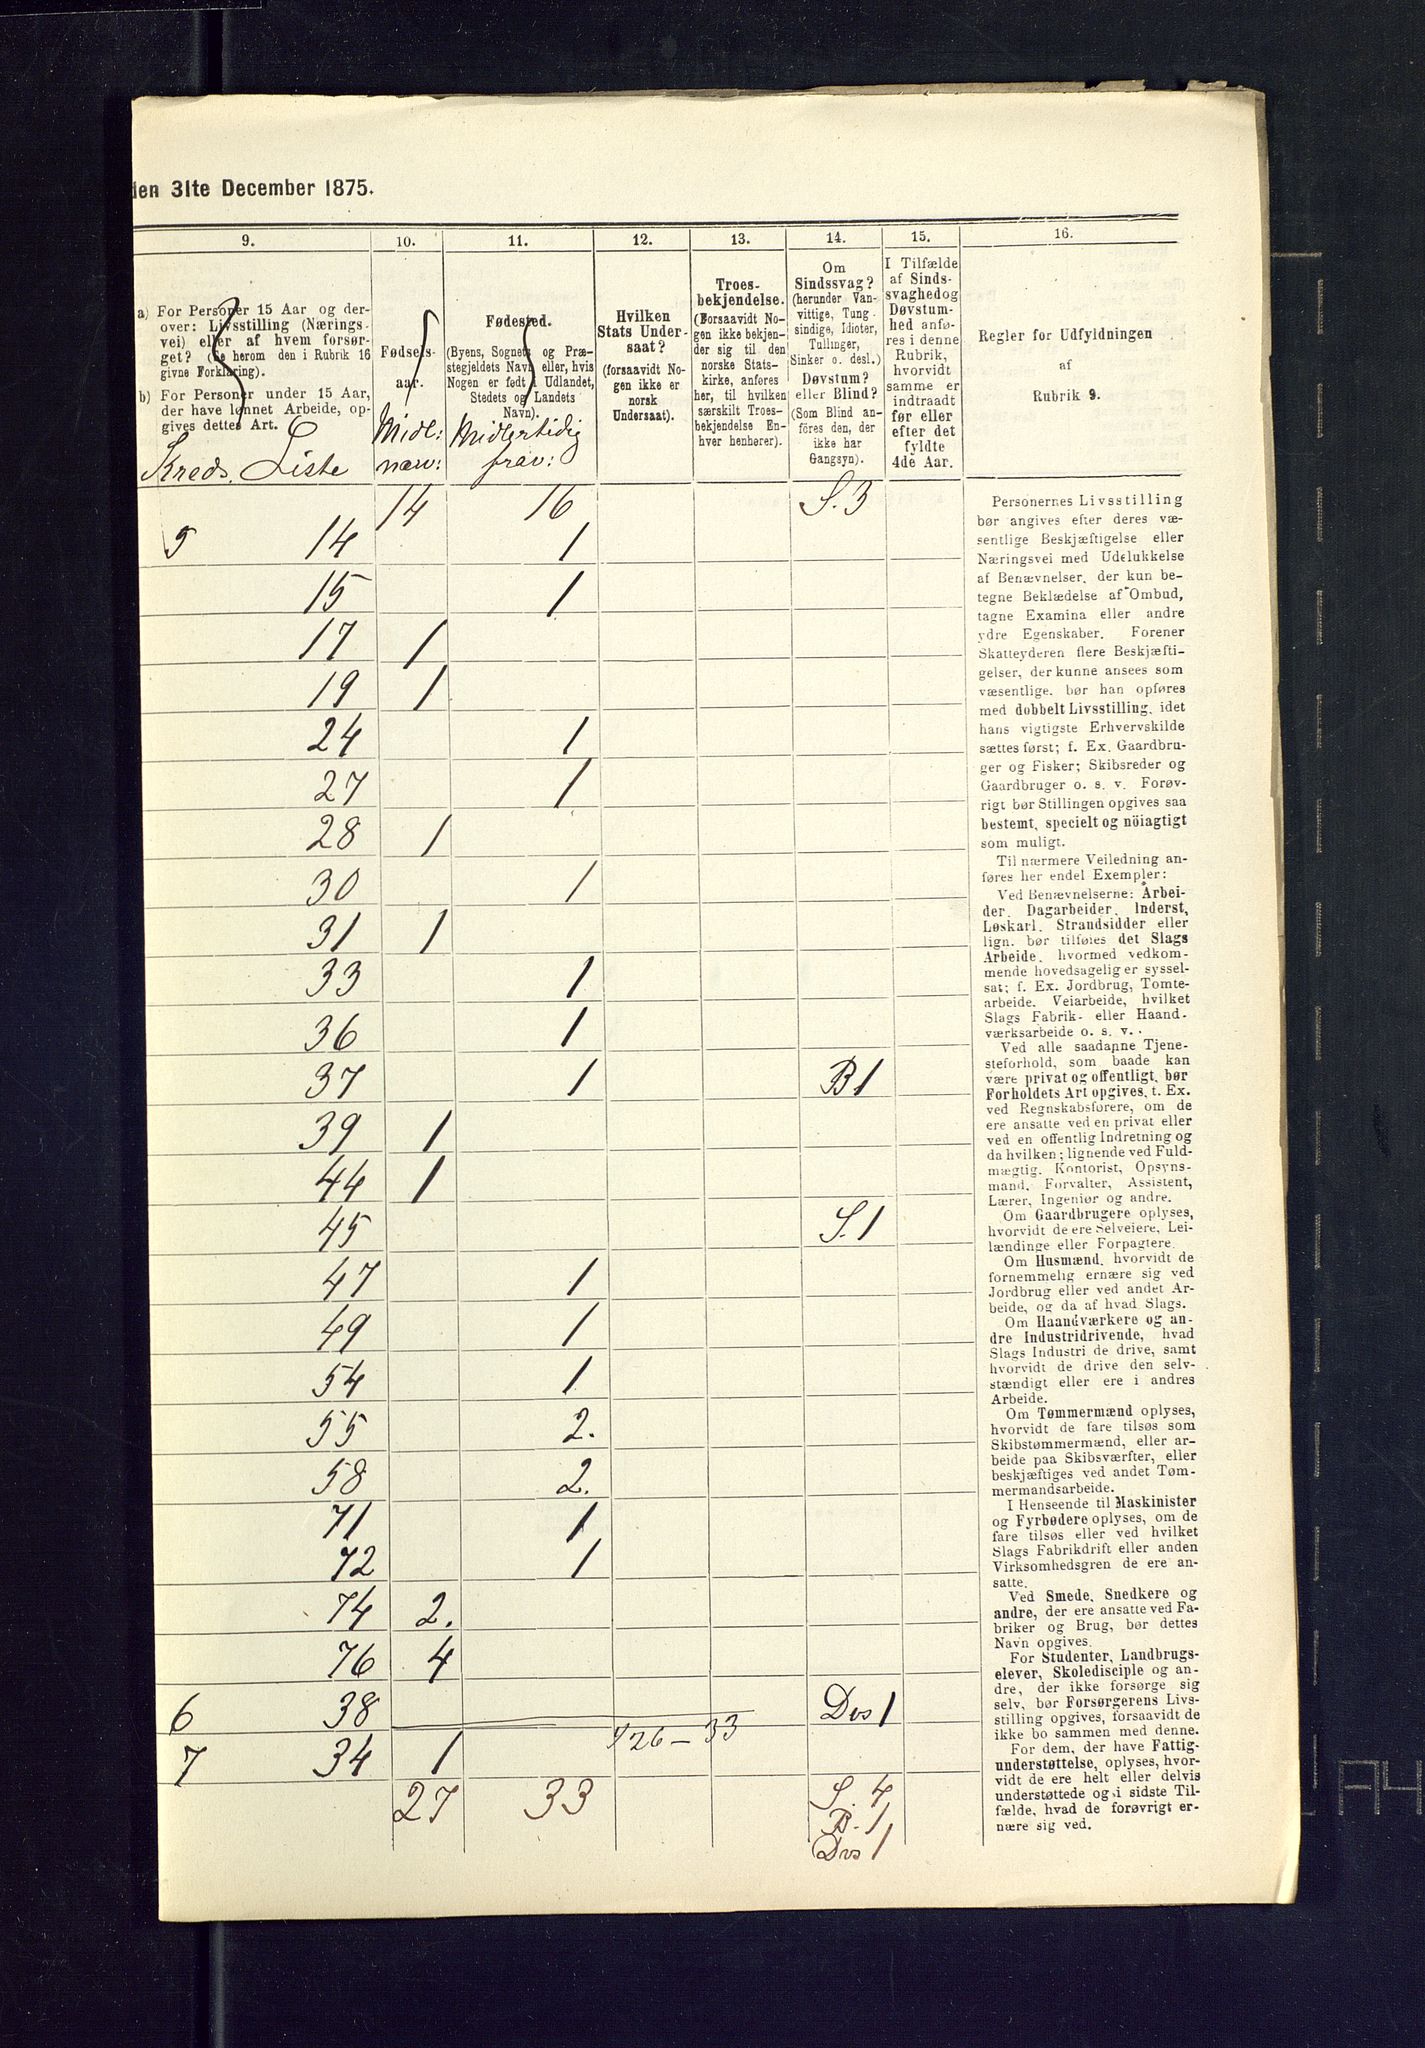 den 31te December 1875.
9. 10. 11. 12. 13. 14. 15. 16.
a) For Personer 15 Aar og der-
over: Livsstilling (Nærings-
vei) eller af hvem forsør-
get? (Se herom den i Rubrik 16
givne Forklaring).
b) For Personer under 15 Aar,
der have lønnet Arbeide, op-
gives dettes Art.
Kreds. Liste
Fødsels-
aar.
Midl:
nærv:
Fødested.
(Byens, Sognets og Præ-
stegjeldets Navn eller, hvis
Nogen er født i Udlandet,
Stedets og Landets
Navn).
Midlertidig
frav:
Hvilken
Stats Under-
saat?
(forsaavidt No-
gen ikke er
norsk
Undersaat).
Troes-
bekjendelse.
(Forsaavidt No-
gen ikke bekjen-
der sig til den
norske Stats-
kirke, anføres
her, til hvilken
særskilt Troes-
bekjendelse En-
hver henhører).
Om
Sindssvag?
(herunder Van-
vittige, Tung-
sindige, Idioter,
Tullinger,
Sinker o. desl.)
Døvstum?
eller Blind?
(Som Blind an-
føres den, der
ikke har
Gangsyn).
I Tilfælde
af Sinds-
svaghed og
Døvstum-
hed anfø-
res i denne
Rubrik,
hvorvidt
samme er
indtraadt
før eller
efter det
fyldte
4de Aar.
Regler for Udfyldningen
af
Rubrik 9.
14 16 S. 3
5 14 1
15 1
17 1
19 1
24 1
27 1
28 1
30 1
31 1
33 1
36 1
37 1 B 1
39 1
44 1
45 S. 1
47 1
49 1
54 1
55 2.
58 2.
71 1
72 1
74 2.
76 4
6 38 Dvs 1
726 - 33
7 34 1
27 33 S. 4
B. 1
Dvs 1
Personernes Livsstilling
bør angives efter deres væ-
sentlige Beskjæftigelse eller
Næringsvei med Udelukkelse
af Benævnelser, der kun be-
tegne Beklædelse af Ombud,
tagne Examina eller andre
ydre Egenskaber. Forener
Skatteyderen flere Beskjæfti-
gelser, der kunne ansees som
væsentlige, bør han opføres
med dobbelt Livsstilling, idet
hans vigtigste Erhvervskilde
sættes først; f. Ex. Gaardbru-
ger og Fisker; Skibsreder og
Gaardbruger o. s. v. Forøv-
rigt bør Stillingen opgives saa
bestemt, specielt og nöiagtigt
som muligt.
Til nærmere Veiledning an-
føres her endel Exempler:
Ved Benævnelserne: Arbei-
der, Dagarbeider, Inderst,
Løskarl, Strandsidder eller
lign. bør tilføies det Slags
Arbeide, hvormed vedkom-
mende hovedsagelig er syssel-
sat; f. Ex. Jordbrug, Tomte-
arbeide, Veiarbeide, hvilket
Slags Fabrik- eller Haand-
værksarbeide o. s. v.
Ved alle saadanne Tjene-
steforhold, som baade kan
være privat og offentligt, bør
Forholdets Art opgives, t. Ex.
ved Regnskabsførere, om de
ere ansatte ved en privat eller
ved en offentlig Indretning og
da hvilken; lignende ved Fuld-
mægtig, Kontorist, Opsyns-
mand, Forvalter, Assistent,
Lærer, Ingeniør og andre.
Om Gaardbrugere oplyses,
hvorvidt de ere Selveiere, Lei-
lændinge eller Forpagtere.
Om Husmænd, hvorvidt de
fornemmelig ernære sig ved
Jordbrug eller ved andet Ar-
beide, og da af hvad Slags.
Om Haandværkere og an-
dre Industridrivende, hvad
Slags Industri de drive, samt
hvorvidt de drive den selv-
stændigt eller ere i andres
Arbeide.
Om Tømmermænd oplyses,
hvorvidt de fare tilsøs som
Skibstømmermænd, eller ar-
beide paa Skibsværfter, eller
beskjæftiges ved andet Tøm-
mermandsarbeide.
I Henseende til Maskinister
og Fyrbødere oplyses, om de
fare tilsøs eller ved hvilket
Slags Fabrikdrift eller anden
Virksomhedsgren de ere an-
satte.
Ved Smede, Snedkere og
andre, der ere ansatte ved Fa-
briker og Brug, bør dettes
Navn opgives.
For Studenter, Landbrugs-
elever, Skoledisciple og an-
dre, der ikke forsørge sig
selv, bør Forsørgerens Livs-
stilling opgives, forsaavidt de
ikke bo sammen med denne.
For dem, der have Fattig-
understøttelse, oplyses, hvor-
vidt de ere helt eller delvis
understøttede og i sidste Til-
fælde, hvad de forøvrigt er-
nære sig ved.
A4